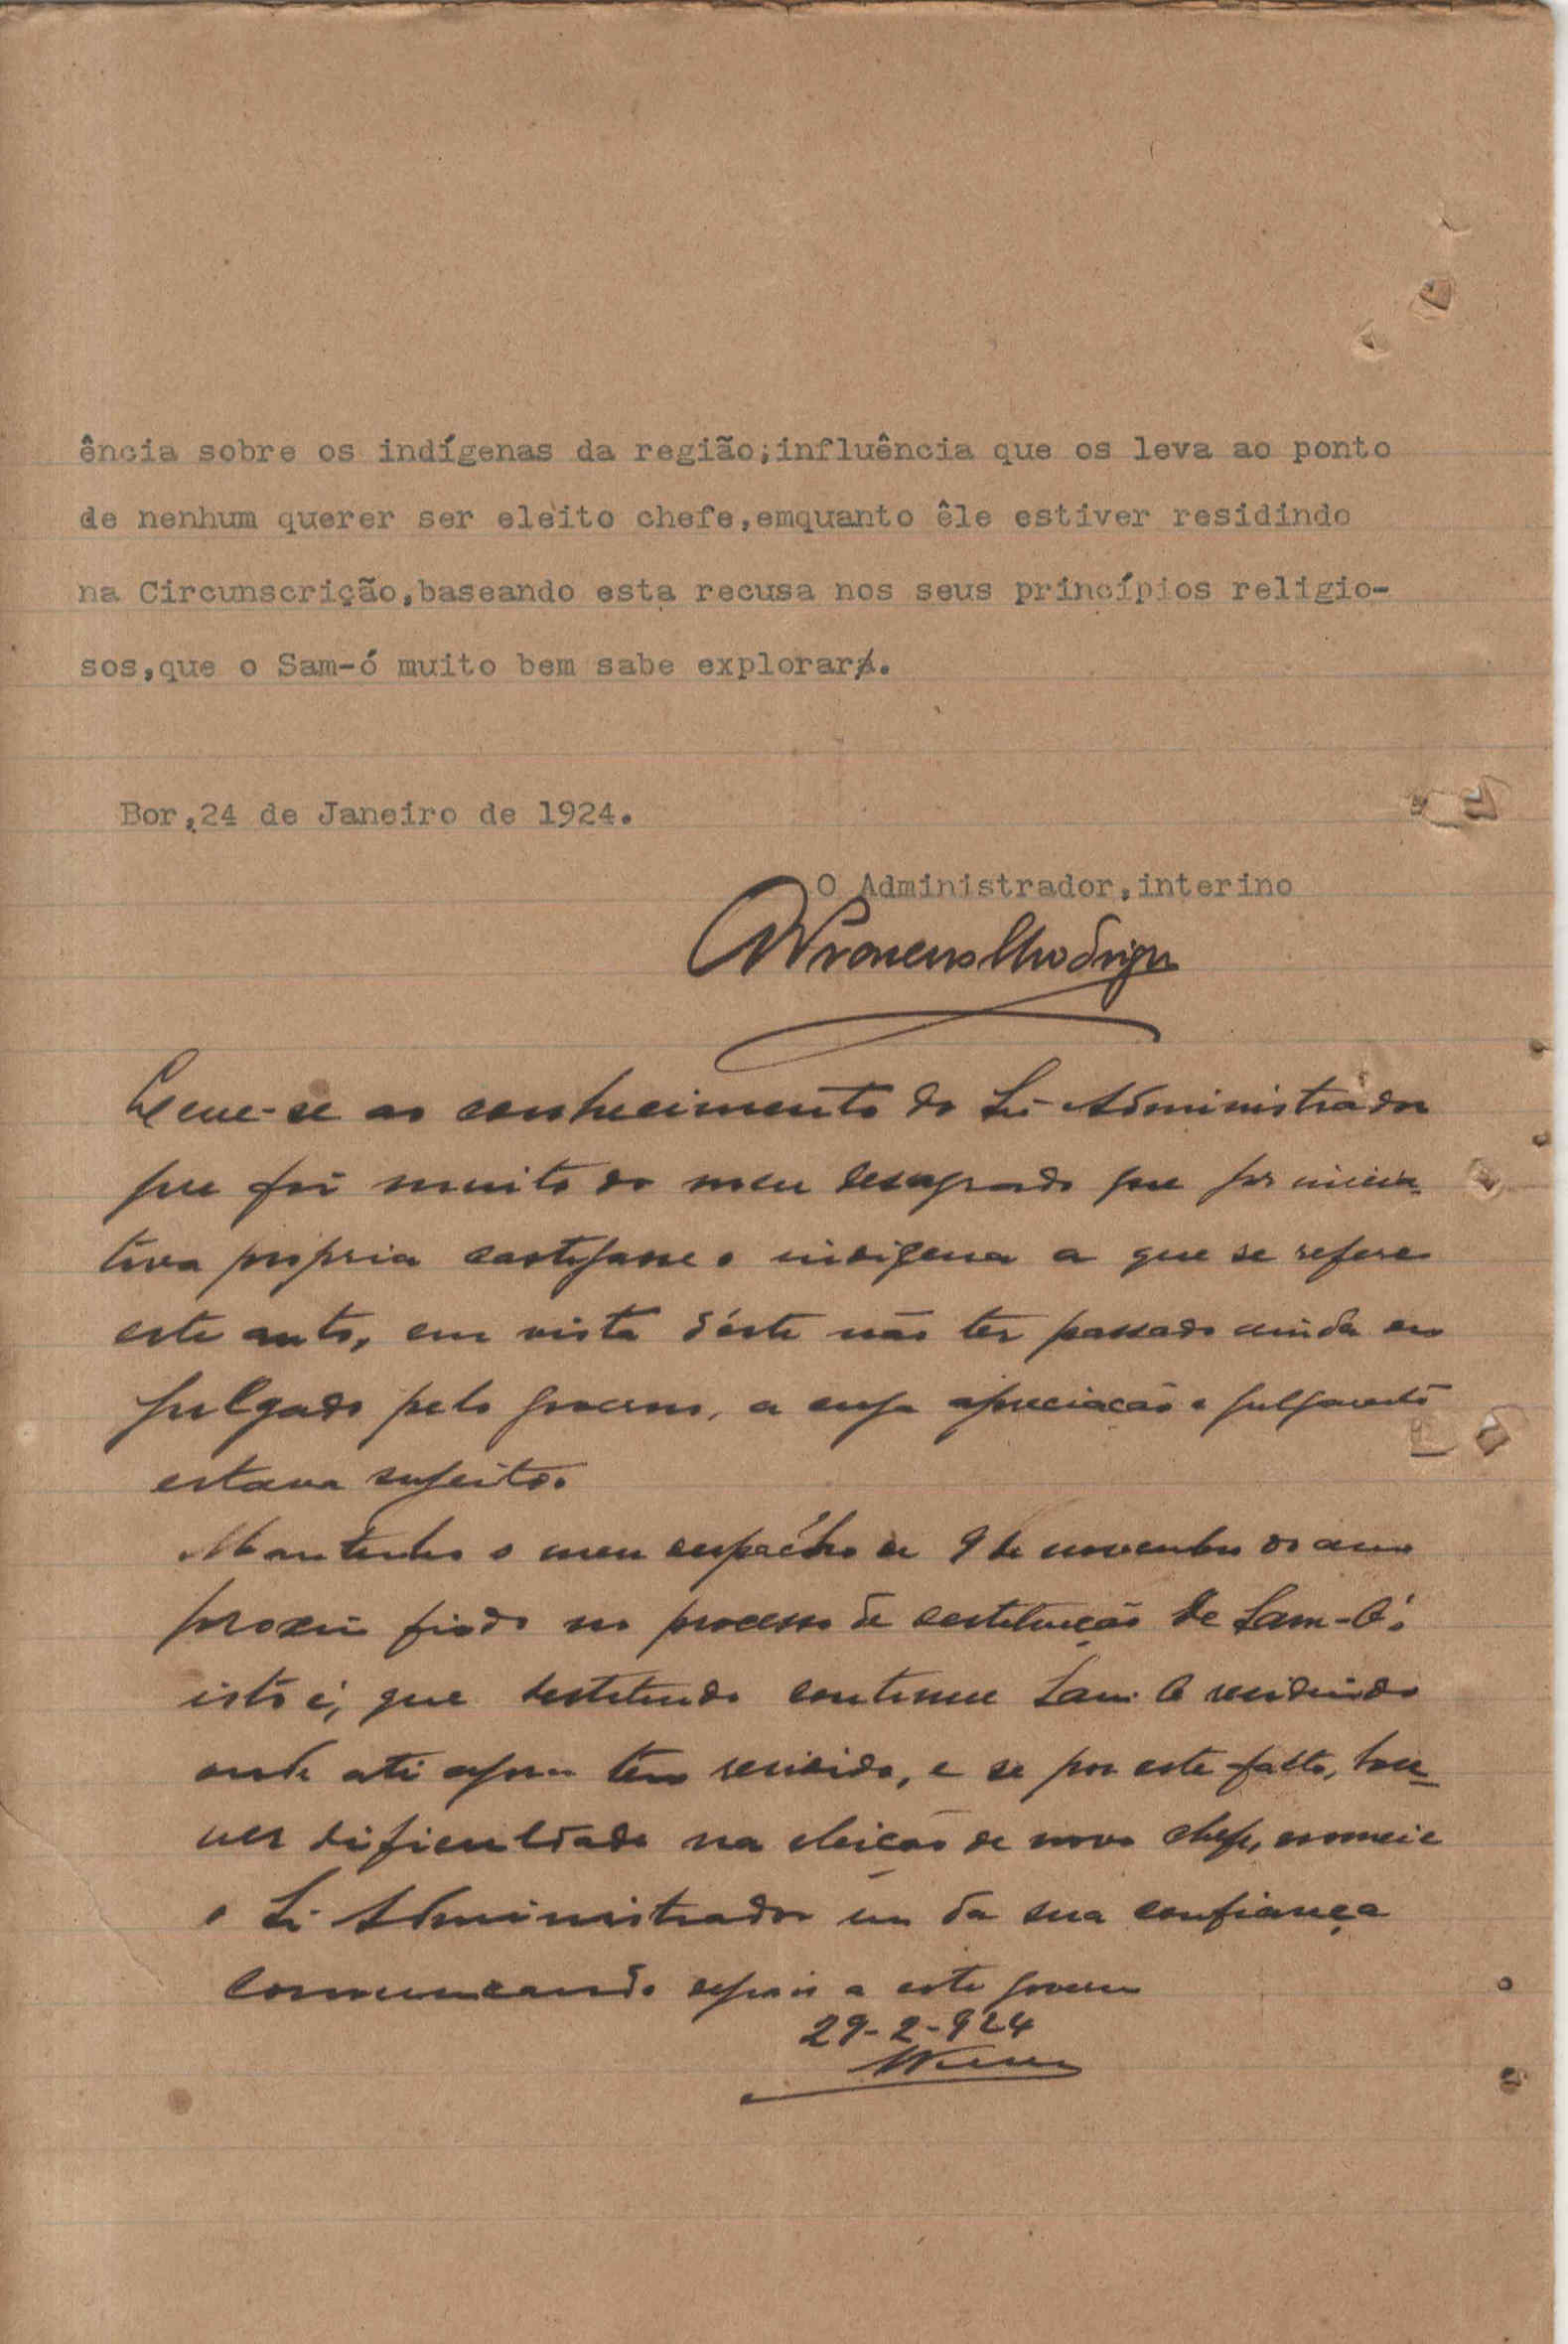 ência sobre os indígenas da região;influência que os leva ao ponto
de nenhum querer ser eleito chefe,emquanto êle estiver residindo
na Circunscrição,baseando esta recusa nos seus princípios religio-
sos,que o Sam-ó muito bem sabe explorar.
Bor,24 de Janeiro de 1924.
O Administrador,interino
Leve-se ao conhecimento do Sr Administrador
que foi muito do meu desagrado que por inicia-
tiva propria castigasse o indigena a que se refere
este auto, em vista d'este não ter passado ainda em
julgado pelo governo, a cuja apreciação e julgamento
estava sujeito.
Mantenho o meu despacho de 9 de novembro do ano
proximo findo no processo de destituição de Sam-Ó:
isto é, que destituido continue Sam-O residindo
onde até agora tem residido, e se por este facto, hou-
ver dificuldade na eleição de novo chefe, nomeie
o Sr Administrador um da sua confiança
comunicando depois a este governo
29-2-924